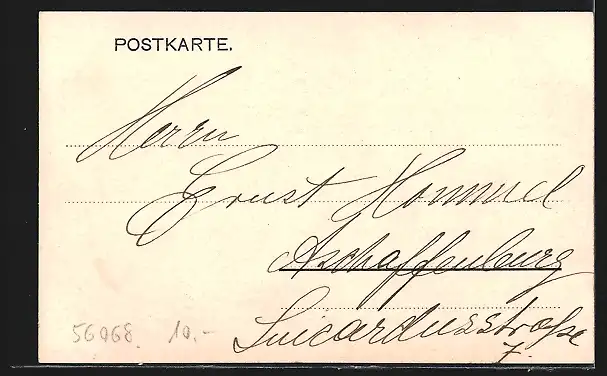 POSTKARTE.
Herrn
Ernst Hommel
Aschaffenburg
Luicardusstroße
7.
56068 10.-